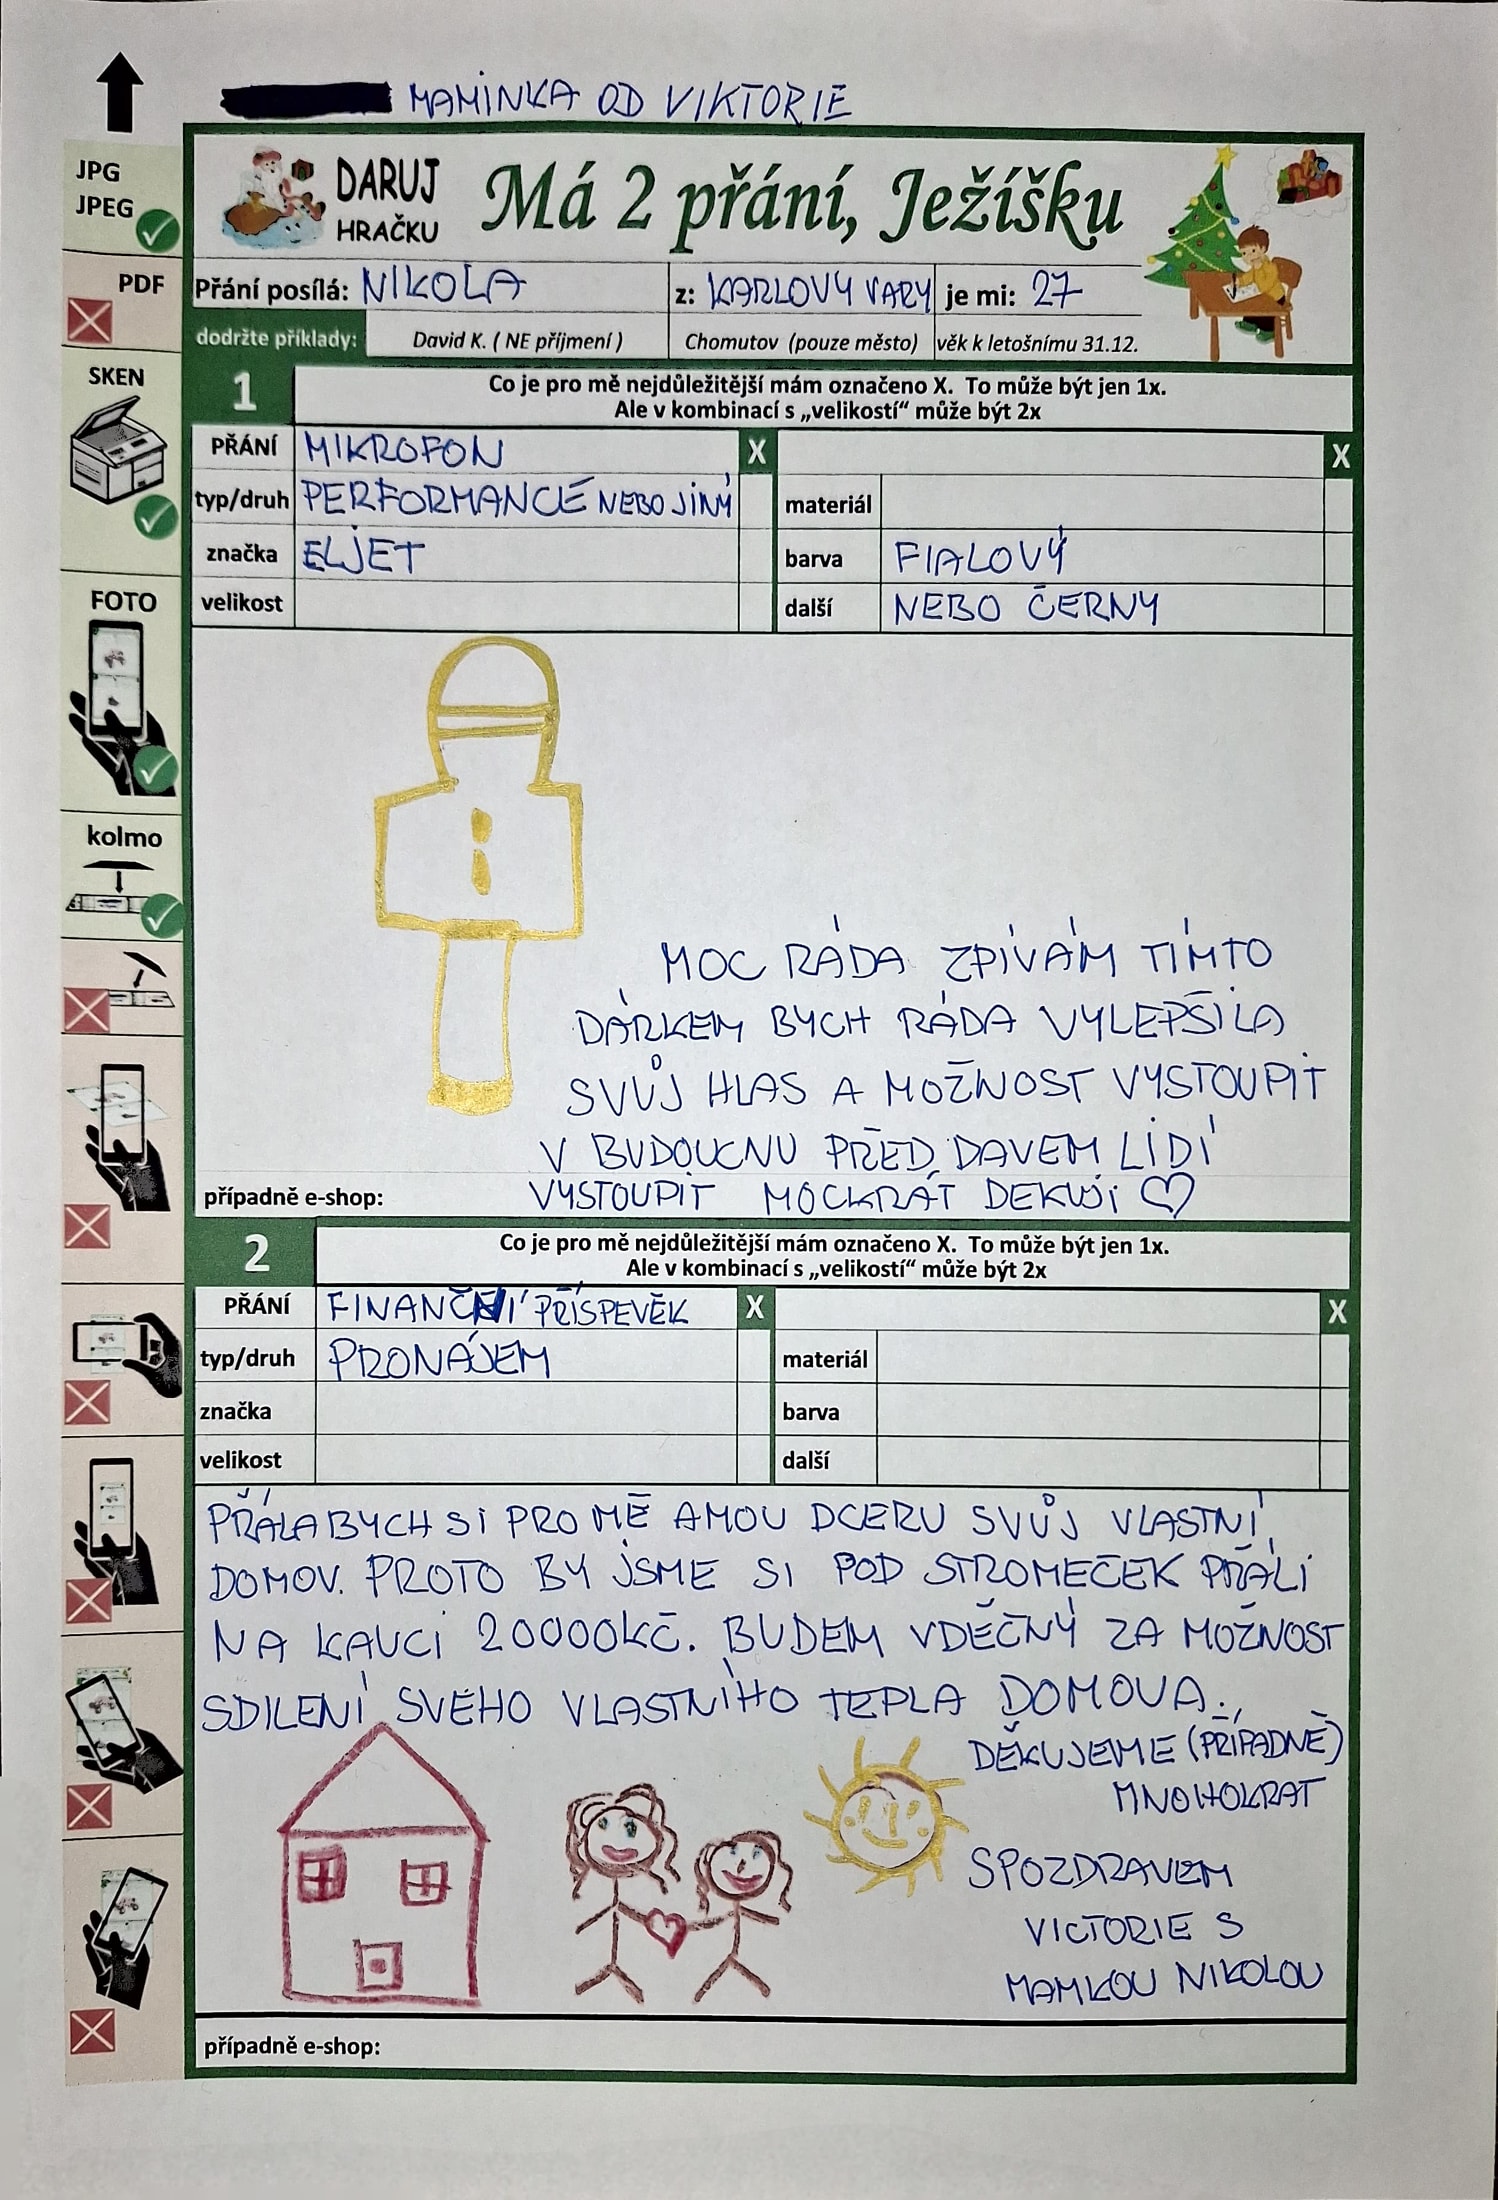 MAMINKA OD VIKTORIE
JPG
JPEG
PDF
SKEN
FOTO
kolmo
DARUJ
HRAČKU
Má 2 přání, Ježíšku
Přání posílá: NIKOLA z: KARLOVY VARY je mi: 27
dodržte příklady: David K. ( NE příjmení ) Chomutov (pouze město) věk k letošnímu 31.12.
1
Co je pro mě nejdůležitější mám označeno X. To může být jen 1x.
Ale v kombinací s „velikostí“ může být 2x
PŘÁNÍ MIKROFON X X
typ/druh PERFORMANCE NEBO JINÝ materiál
značka ELJET barva FIALOVÝ
velikost další NEBO ČERNY
MOC RÁDA ZPÍVÁM TÍMTO
DÁRKEM BYCH RÁDA VYLEPŠILA
SVŮJ HLAS A MOŽNOST VYSTOUPIT
V BUDOUCNU PŘED DAVEM LIDÍ
případně e-shop: VYSTOUPIT MOCKRÁT DEKUJI ♡
2
Co je pro mě nejdůležitější mám označeno X. To může být jen 1x.
Ale v kombinací s „velikostí“ může být 2x
PŘÁNÍ FINANČNÍ PŘÍSPEVĚK X X
typ/druh PRONÁJEM materiál
značka barva
velikost další
PŘÁLA BYCH SI PRO MĚ A MOU DCERU SVŮJ VLASTNÍ
DOMOV. PROTO BY JSME SI POD STROMEČEK PŘÁLI
NA KAUCI 20000KČ. BUDEM VDĚČNÝ ZA MOŽNOST
SDILENÍ SVEHO VLASTNÍHO TEPLA DOMOVA.
DĚKUJEME (PŘÍPADNĚ)
MNOHOKRAT
SPOZDRAVEM
VICTORIE S
MAMKOU NIKOLOU
případně e-shop: